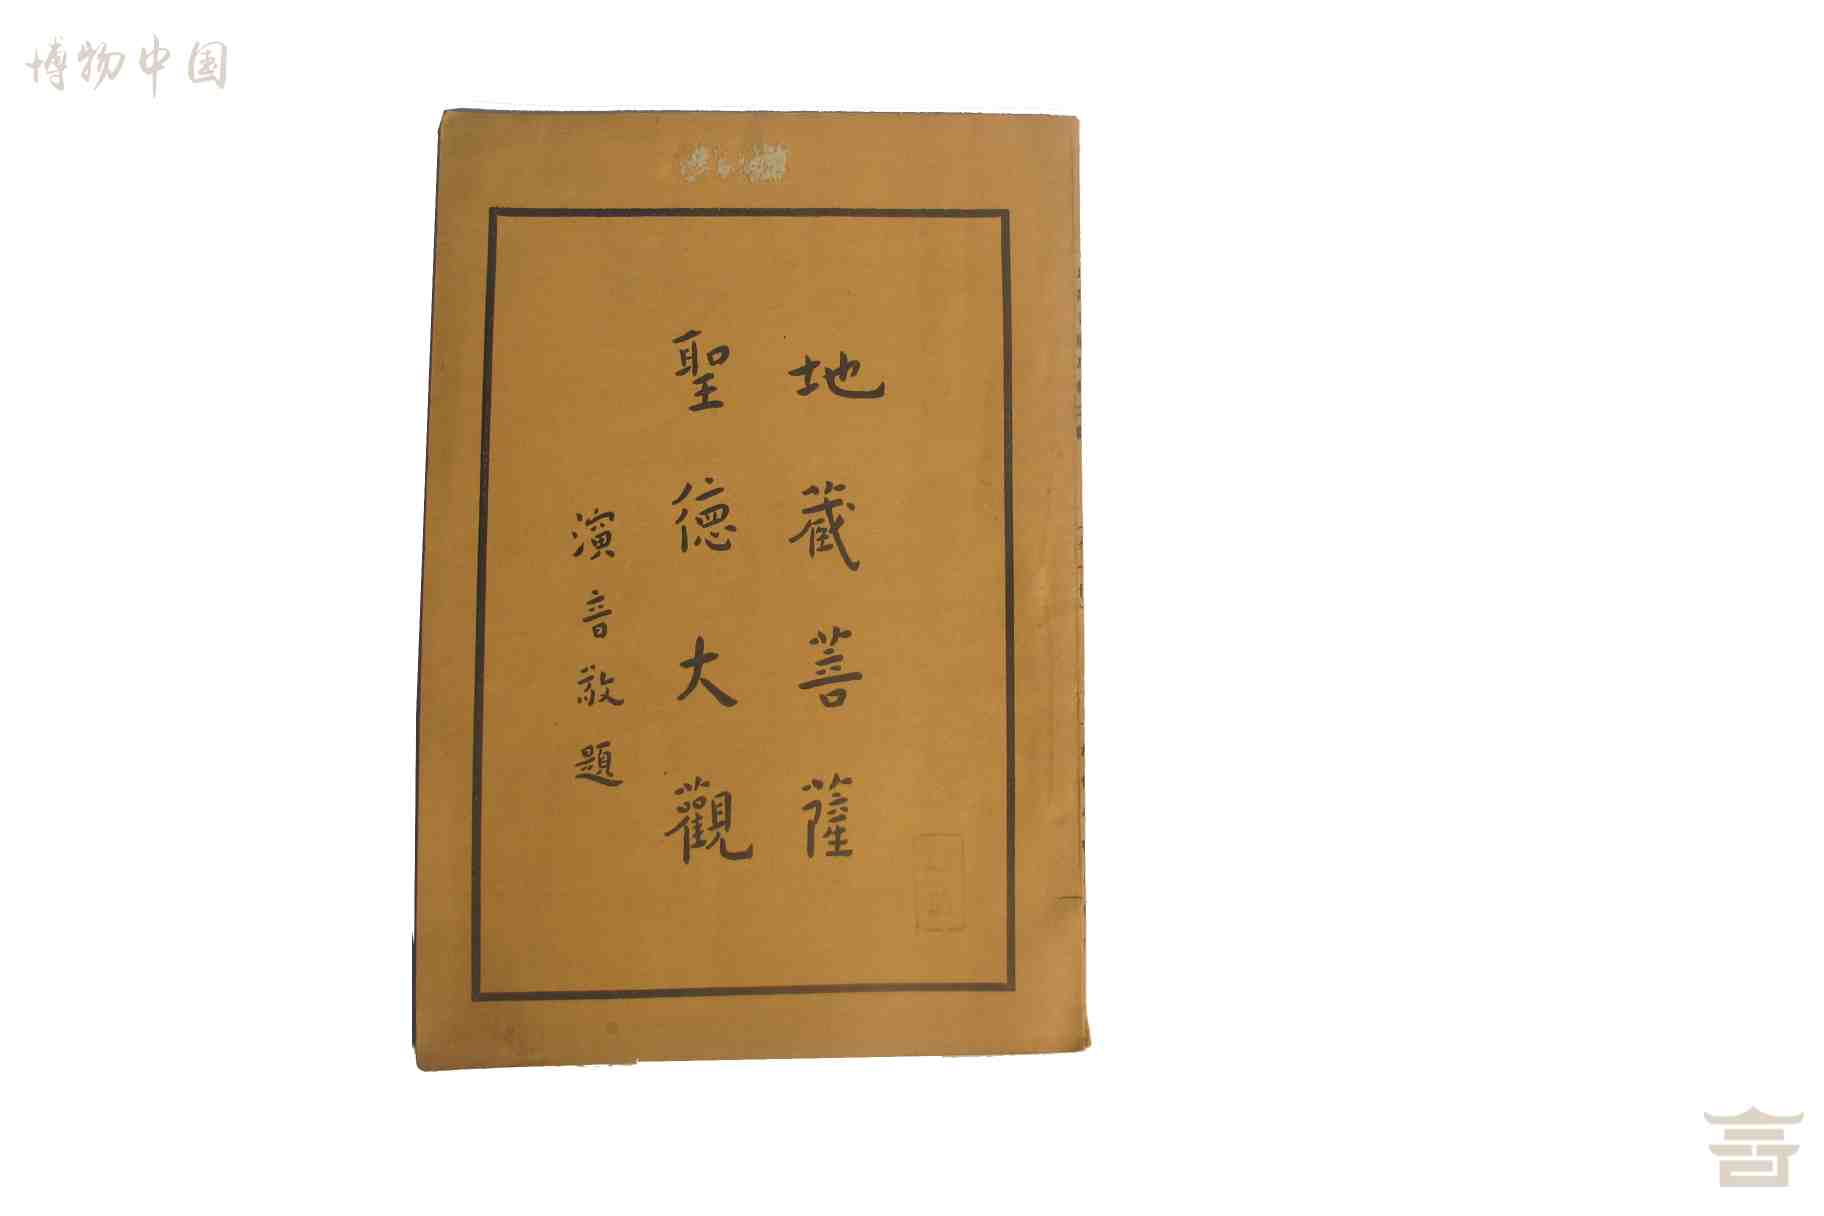 博物中国
地藏菩薩
聖德大觀
演音敬題